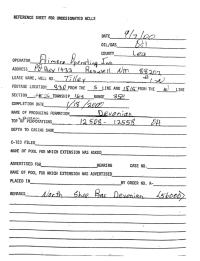 REFERENCE SHEET FOR UNDESIGNATED WELLS
DATE 9/7/00
OIL/GAS Oil
COUNTY Lea
OPERATOR Primero Operating Inc
ADDRESS PO Box 1433 Roswell NM 88202
LEASE NAME, WELL NO. Tilley
FOOTAGE LOCATION 330 FROM THE S LINE AND FROM THE W LINE
SECTION TOWNSHIP 16S RANGE 35E
COMPLETION DATE 1/18/2000
NAME OF PRODUCING FORMATION Devonian
TOP OF PERFORATIONS 12508 - 12558
DEPTH TO CASING SHOE
C-123 FILED
NAME OF POOL FOR WHICH EXTENSION WAS ASKED
ADVERTISED FOR HEARING CASE NO.
NAME OF POOL FOR WHICH EXTENSION WAS ADVERTISED
PLACED IN BY ORDER NO. R-
REMARKS North Shoe Bar Devonian